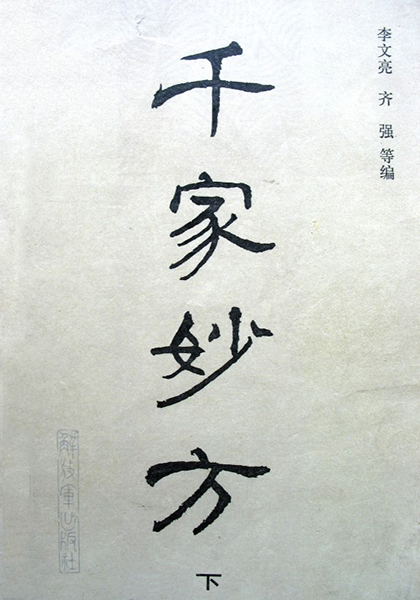 李文亮 齐强等编
千家妙方
下
解放军出版社